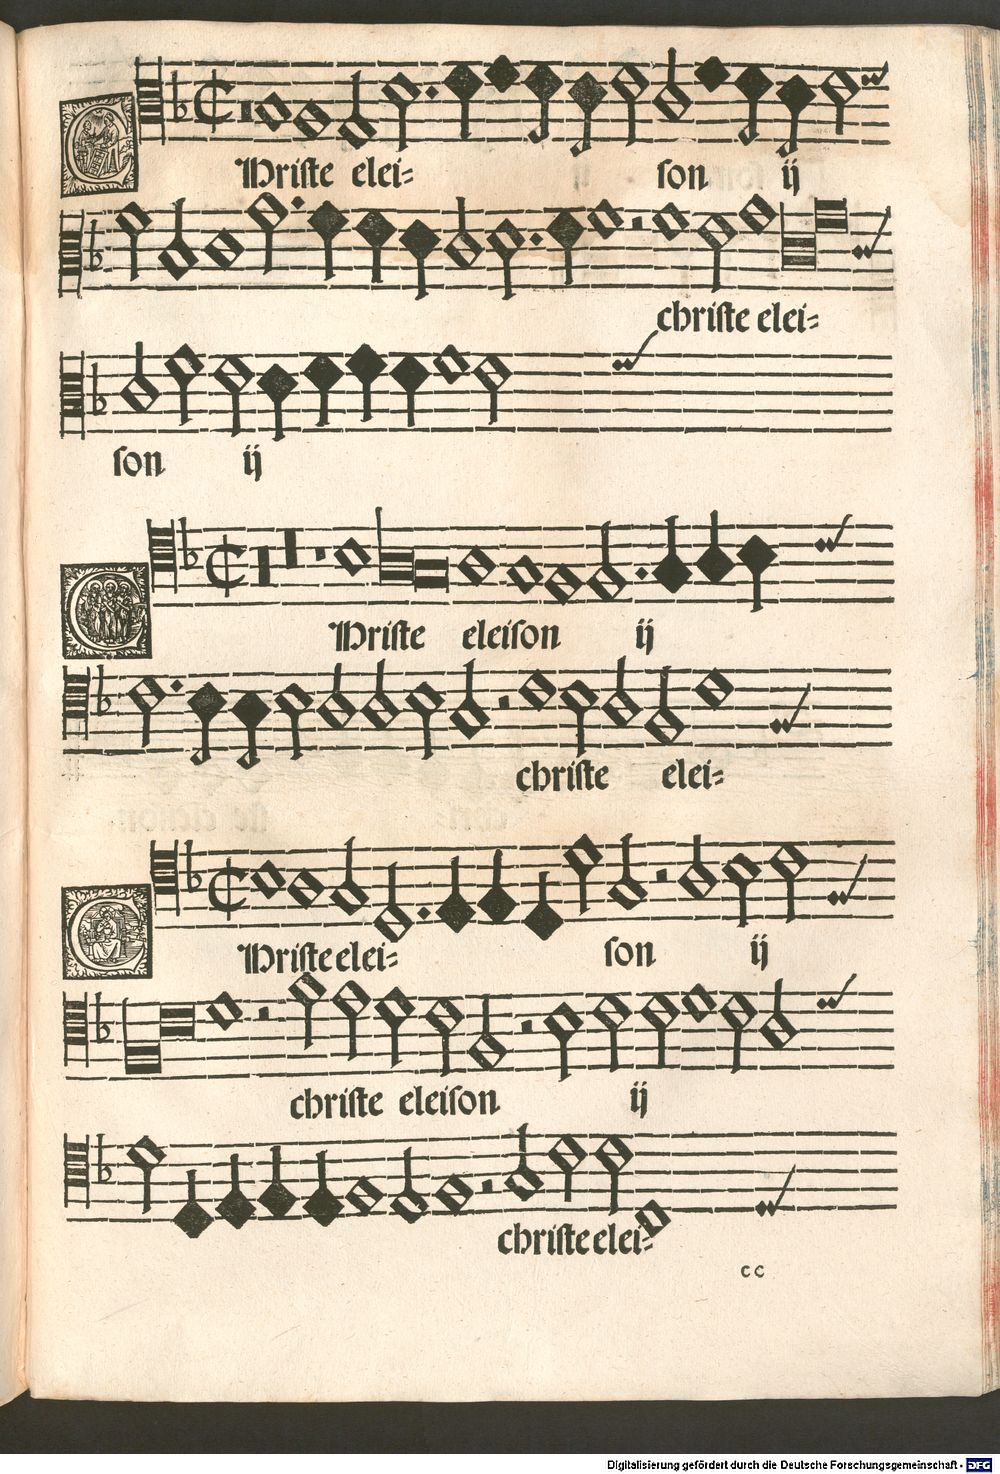 CHriste elei= son ij
christe elei=
son ij
CHriste eleison ij
christe elei=
CHriste elei= son ij
christe eleison ij
christe elei=
cc
Digitalisierung gefördert durch die Deutsche Forschungsgemeinschaft - DFG